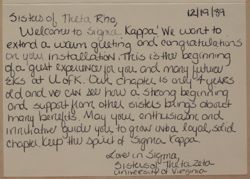 12/19/89
Sisters of Theta Rho,
Welcome to Sigma Kappa! We want to
extend a warm greeting and congratulations
on your installation. This is the beginning
of a great experience for you and many future
SKs at U of K. Our chapter is only 4 years
old and we can see how a strong beginning
and support from other sisters brings about
many benefits. May your enthusiasm and
initiative guide you to grow into a loyal, solid
chapter. Keep the spirit of Sigma Kappa.
Love in Sigma,
Sisters of Theta Zeta
University of Virginia